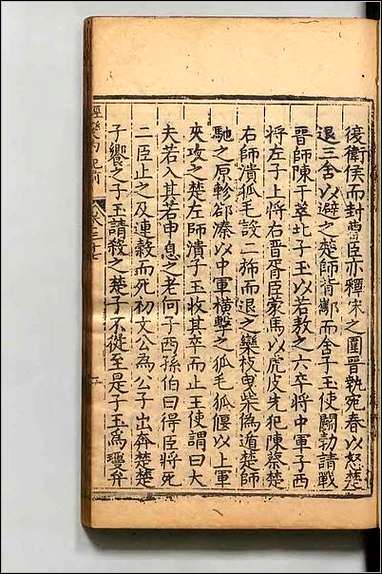 復衛侯而封曹臣亦釋宋之圍晉執宛春以怒楚
退三舍以避之楚師背酅而舍子玉使鬪勃請戰
晉師陳于莘北子玉以若敖之六卒將中軍子西
將左子上將右晉胥臣蒙馬以虎皮先犯陳蔡楚
右師潰狐毛設二旆而退之欒枝曳柴僞遁楚師
馳之原軫郤溱以中軍橫擊之狐毛狐偃以上軍
夾攻之楚左師潰子玉收其卒而止王使謂曰大
夫若入其若申息之老何子西孫伯曰得臣將死
二臣止之及連穀而死初文公為公子出奔楚楚
子饗之子玉請殺之楚子不從至是子玉爲瓊弁